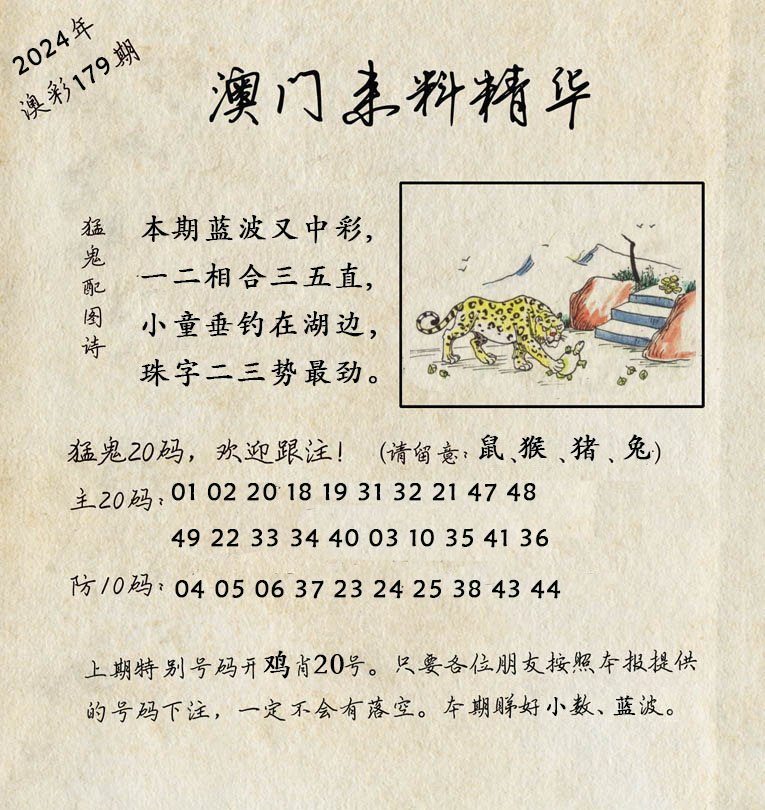 2024年
澳彩179期
澳门来料精华
猛鬼配图诗
本期蓝波又中彩，
一二相合三五直，
小童垂钓在湖边，
珠字二三势最劲。
猛鬼20码，欢迎跟注！（请留意：鼠、猴、猪、兔）
主20码：01 02 20 18 19 31 32 21 47 48
49 22 33 34 40 03 10 35 41 36
防10码：04 05 06 37 23 24 25 38 43 44
上期特别号码开鸡肖20号。只要各位朋友按照本报提供
的号码下注，一定不会有落空。本期睇好小数、蓝波。